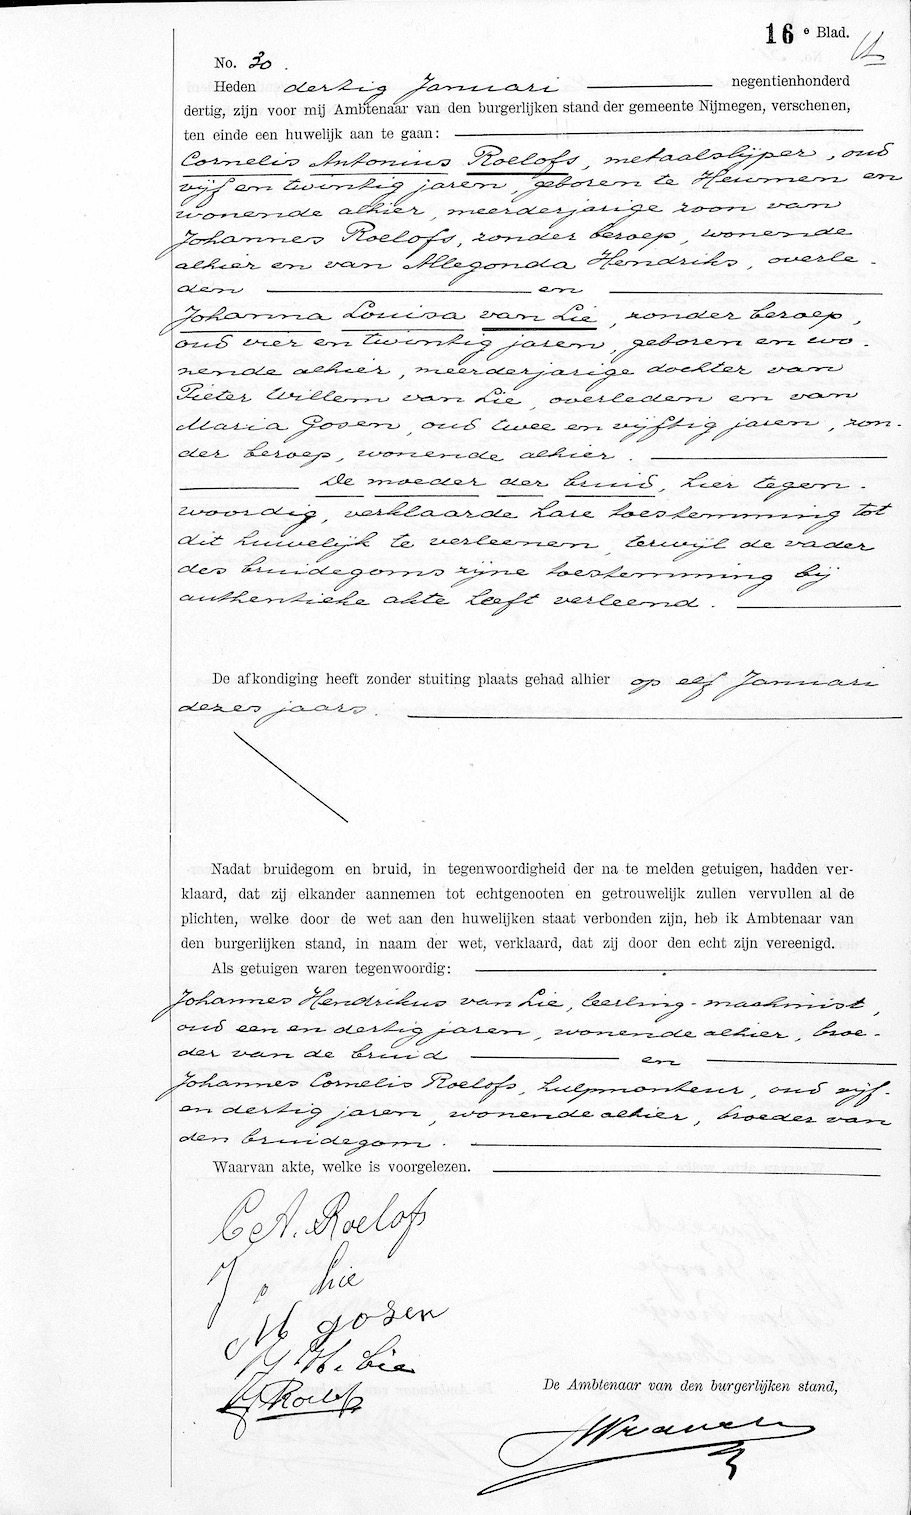 16e Blad.
No. 30.
Heden dertig Januari negentienhonderd
dertig, zijn voor mij Ambtenaar van den burgerlijken stand der gemeente Nijmegen, verschenen,
ten einde een huwelijk aan te gaan:
Cornelis Antonius Roelofs, metaalslijper, oud
vijf en twintig jaren, geboren te Heumen en
wonende alhier, meerderjarige zoon van
Johannes Roelofs, zonder beroep, wonende
alhier en van Allegonda Hendriks, overle-
den en
Johanna Louisa van Lie, zonder beroep,
oud vier en twintig jaren, geboren en wo-
nende alhier, meerderjarige dochter van
Pieter Willem van Lie, overleden en van
Maria Gosen, oud twee en vijftig jaren, zon-
der beroep, wonende alhier.
De moeder der bruid, hier tegen-
woordig, verklaarde hare toestemming tot
dit huwelijk te verleenen, terwijl de vader
des bruidegoms zijne toestemming bij
authentieke akte heeft verleend.
De afkondiging heeft zonder stuiting plaats gehad alhier op elf Januari
dezes jaars.
Nadat bruidegom en bruid, in tegenwoordigheid der na te melden getuigen, hadden ver-
klaard, dat zij elkander aannemen tot echtgenooten en getrouwelijk zullen vervullen al de
plichten, welke door de wet aan den huwelijken staat verbonden zijn, heb ik Ambtenaar van
den burgerlijken stand, in naam der wet, verklaard, dat zij door den echt zijn vereenigd.
Als getuigen waren tegenwoordig:
Johannes Hendrikus van Lie, leerling-machinist,
oud een en dertig jaren, wonende alhier, broe-
der van de bruid en
Johannes Cornelis Roelofs, hulpmonteur, oud vijf-
en dertig jaren, wonende alhier, broeder van
den bruidegom.
Waarvan akte, welke is voorgelezen.
C.A. Roelofs
J v Lie
M gosen
J H v Lie
Roelofs
De Ambtenaar van den burgerlijken stand,